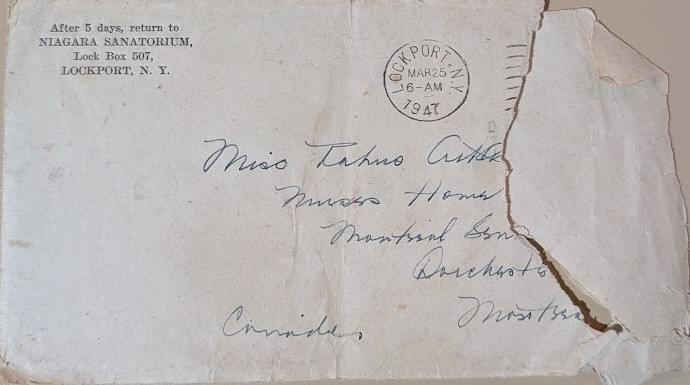 After 5 days, return to
NIAGARA SANATORIUM,
Lock Box 507,
LOCKPORT, N. Y.
LOCKPORT, N.Y.
MAR 25
6-AM
1947
Miss
Nurses Home
Montreal Gen
Dorcheste
Montrea
Canada